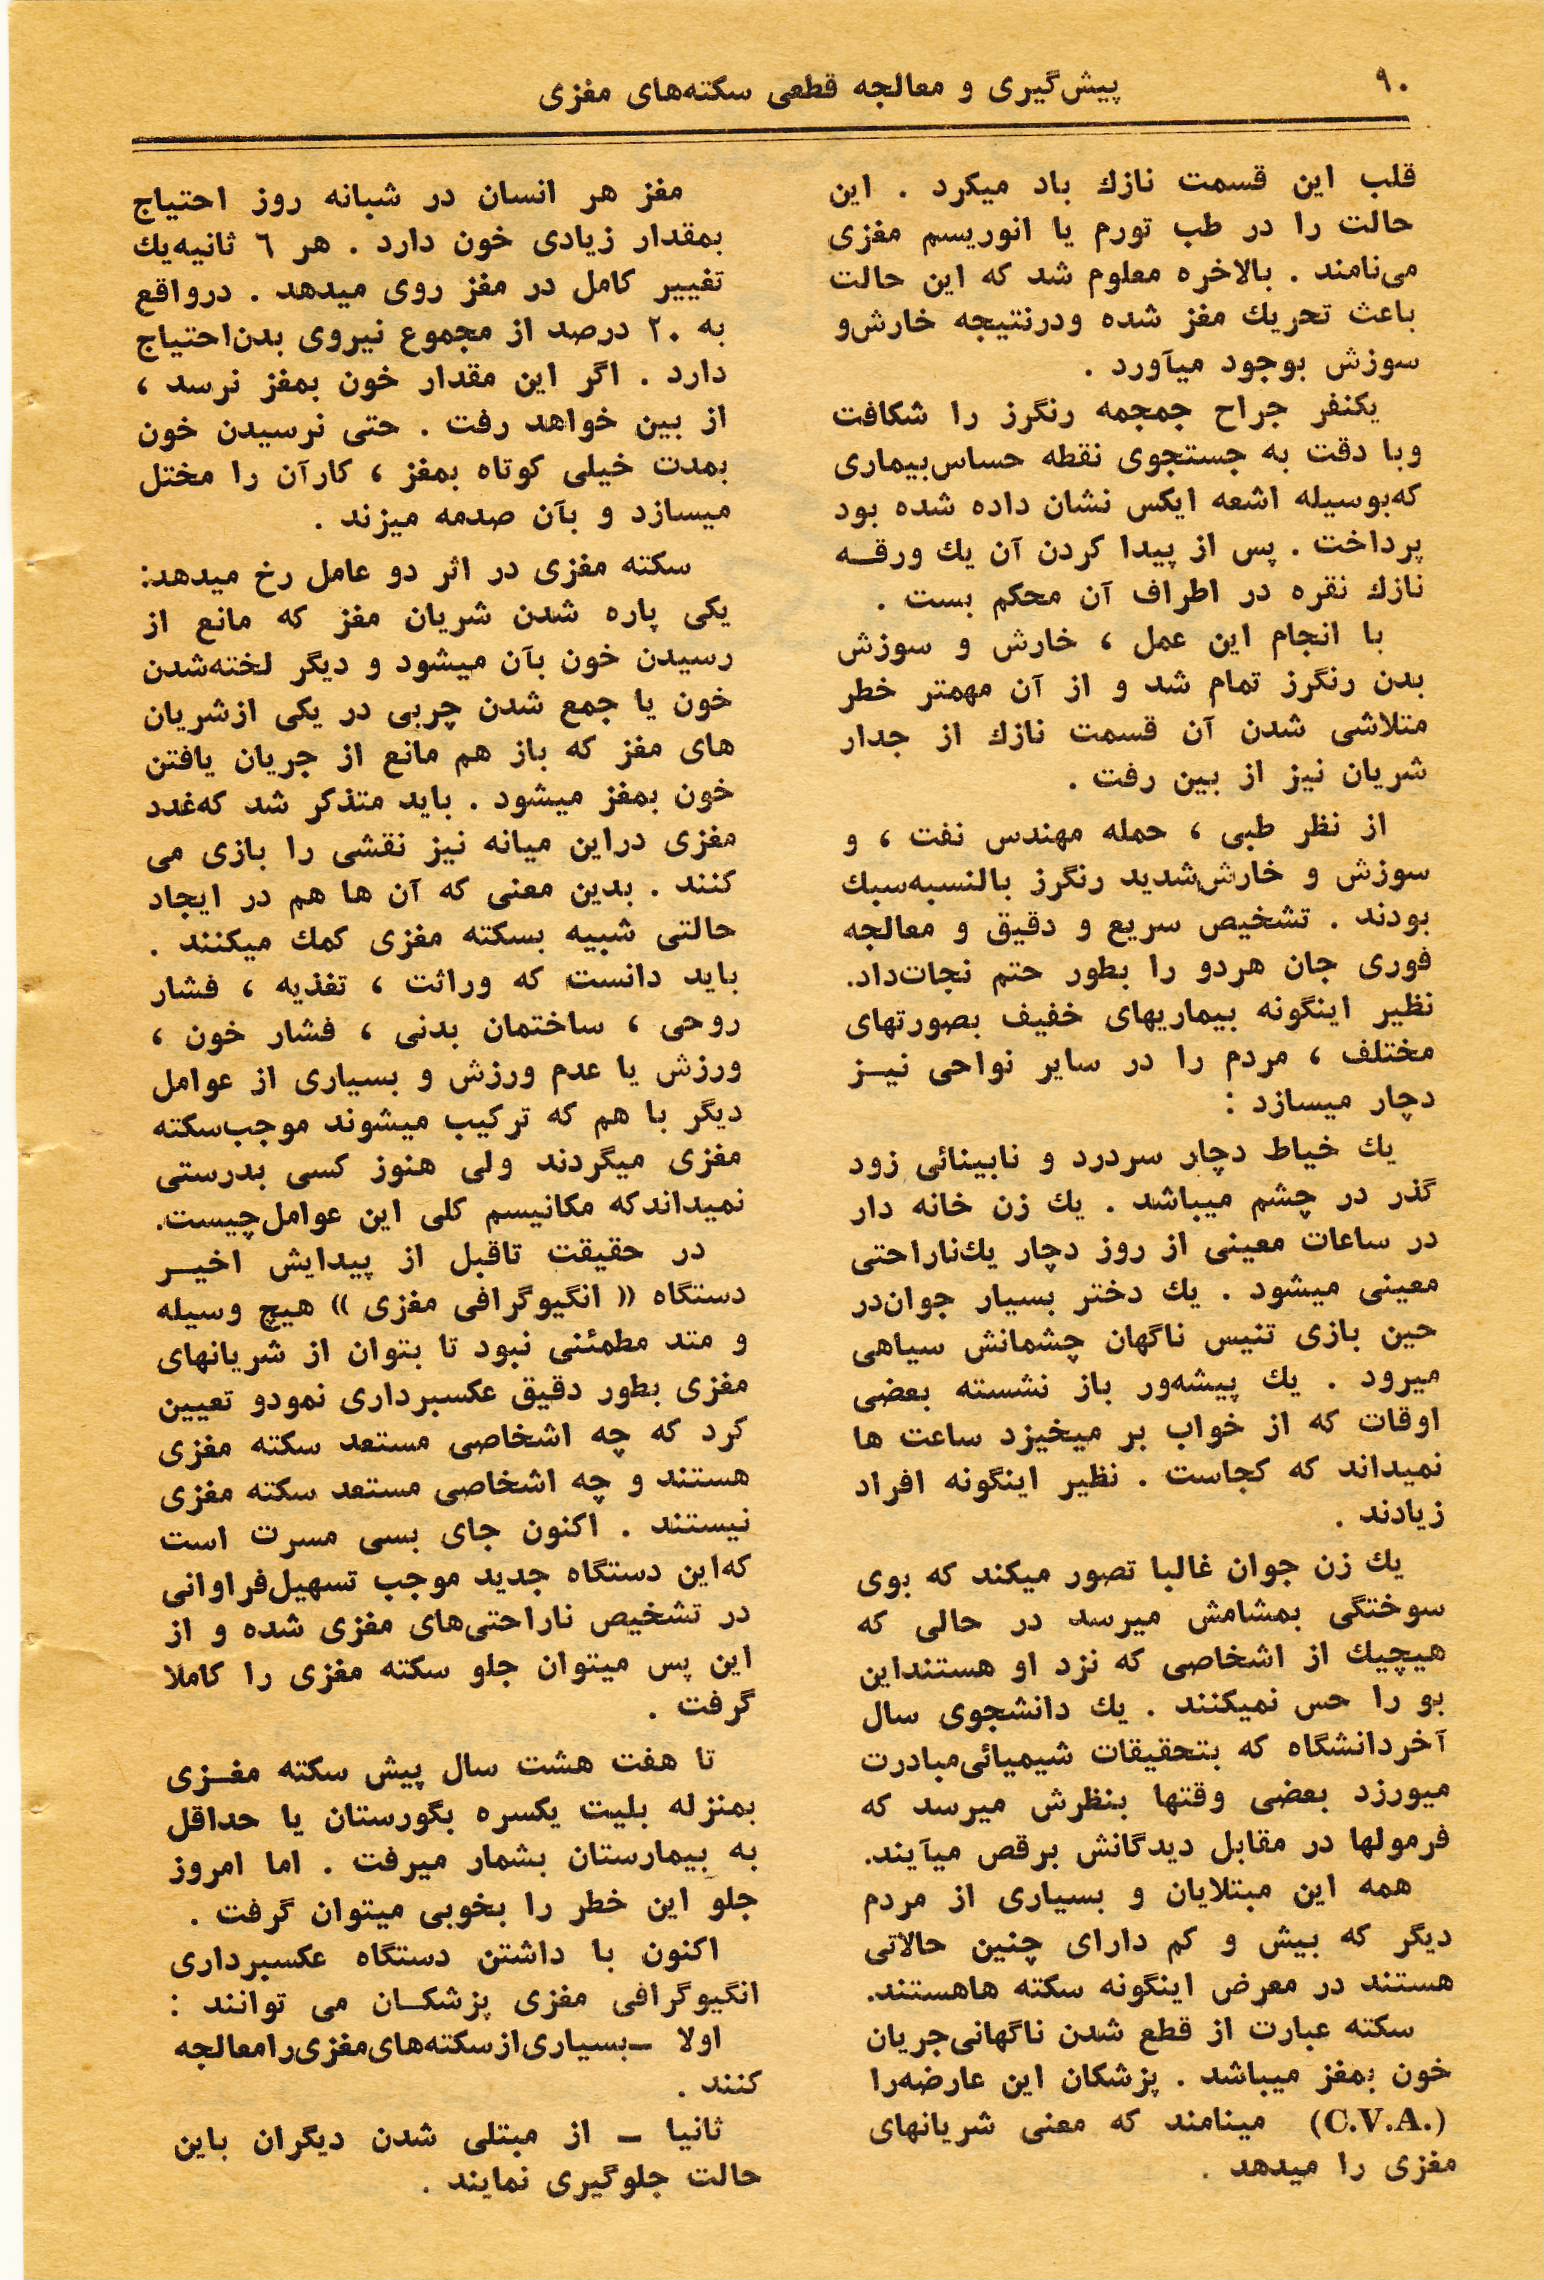 ۹۰
پیش‌گیری و معالجه قطعی سکته‌های مغزی
قلب این قسمت نازك باد میکرد . این
حالت را در طب تورم یا انوریسم مغزی
می‌نامند . بالاخره معلوم شد که این حالت
باعث تحریك مغز شده ودرنتیجه خارش‌و
سوزش بوجود میآورد .
یکنفر جراح جمجمه رنگرز را شکافت
وبا دقت به جستجوی نقطه حساس‌بیماری
که‌بوسیله اشعه ایکس نشان داده شده بود
پرداخت . پس از پیدا کردن آن یك ورقـه
نازك نقره در اطراف آن محکم بست .
با انجام این عمل ، خارش و سوزش
بدن رنگرز تمام شد و از آن مهمتر خطر
متلاشی شدن آن قسمت نازك از جدار
شریان نیز از بین رفت .
از نظر طبی ، حمله مهندس نفت ، و
سوزش و خارش‌شدید رنگرز بالنسبه‌سبك
بودند . تشخیص سریع و دقیق و معالجه
فوری جان هردو را بطور حتم نجات‌داد.
نظیر اینگونه بیماریهای خفیف بصورتهای
مختلف ، مردم را در سایر نواحی نیـز
دچار میسازد :
یك خیاط دچار سردرد و نابینائی زود
گذر در چشم میباشد . یك زن خانه دار
در ساعات معینی از روز دچار یك‌ناراحتی
معینی میشود . یك دختر بسیار جوان‌در
حین بازی تنیس ناگهان چشمانش سیاهی
میرود . یك پیشه‌ور باز نشسته بعضی
اوقات که از خواب بر میخیزد ساعت ها
نمیداند که کجاست . نظیر اینگونه افراد
زیادند .
یك زن جوان غالبا تصور میکند که بوی
سوختگی بمشامش میرسد در حالی که
هیچیك از اشخاصی که نزد او هستنداین
بو را حس نمیکنند . یك دانشجوی سال
آخردانشگاه که بتحقیقات شیمیائی‌مبادرت
میورزد بعضی وقتها بنظرش میرسد که
فرمولها در مقابل دیدگانش برقص میآیند.
همه این مبتلایان و بسیاری از مردم
دیگر که بیش و کم دارای چنین حالاتی
هستند در معرض اینگونه سکته هاهستند.
سکته عبارت از قطع شدن ناگهانی‌جریان
خون بمغز میباشد . پزشکان این عارضه‌را
(C.V.A.) مینامند که معنی شریانهای
مغزی را میدهد .
مغز هر انسان در شبانه روز احتیاج
بمقدار زیادی خون دارد . هر ٦ ثانیه‌یك
تغییر کامل در مغز روی میدهد . درواقع
به ۲۰ درصد از مجموع نیروی بدن‌احتیاج
دارد . اگر این مقدار خون بمغز نرسد ،
از بین خواهد رفت . حتی نرسیدن خون
بمدت خیلی کوتاه بمغز ، کارآن را مختل
میسازد و بآن صدمه میزند .
سکته مغزی در اثر دو عامل رخ میدهد:
یکی پاره شدن شریان مغز که مانع از
رسیدن خون بآن میشود و دیگر لخته‌شدن
خون یا جمع شدن چربی در یکی ازشریان
های مغز که باز هم مانع از جریان یافتن
خون بمغز میشود . باید متذکر شد که‌غدد
مغزی دراین میانه نیز نقشی را بازی می
کنند . بدین معنی که آن ها هم در ایجاد
حالتی شبیه بسکته مغزی کمك میکنند .
باید دانست که وراثت ، تغذیه ، فشار
روحی ، ساختمان بدنی ، فشار خون ،
ورزش یا عدم ورزش و بسیاری از عوامل
دیگر با هم که ترکیب میشوند موجب‌سکته
مغزی میگردند ولی هنوز کسی بدرستی
نمیداندکه مکانیسم کلی این عوامل‌چیست.
در حقیقت تاقبل از پیدایش اخیـر
دستگاه « انگیوگرافی مغزی » هیچ وسیله
و متد مطمئنی نبود تا بتوان از شریانهای
مغزی بطور دقیق عکسبرداری نمودو تعیین
کرد که چه اشخاصی مستعد سکته مغزی
هستند و چه اشخاصی مستعد سکته مغزی
نیستند . اکنون جای بسی مسرت است
که‌این دستگاه جدید موجب تسهیل‌فراوانی
در تشخیص ناراحتی‌های مغزی شده و از
این پس میتوان جلو سکته مغزی را کاملا
گرفت .
تا هفت هشت سال پیش سکته مغـزی
بمنزله بلیت یکسره بگورستان یا حداقل
به بیمارستان بشمار میرفت . اما امروز
جلو این خطر را بخوبی میتوان گرفت .
اکنون با داشتن دستگاه عکسبرداری
انگیوگرافی مغزی پزشکـان می توانند :
اولا ـ بسیاری‌ازسکته‌های‌مغزی‌رامعالجه
کنند .
ثانیا ـ از مبتلی شدن دیگران باین
حالت جلوگیری نمایند .